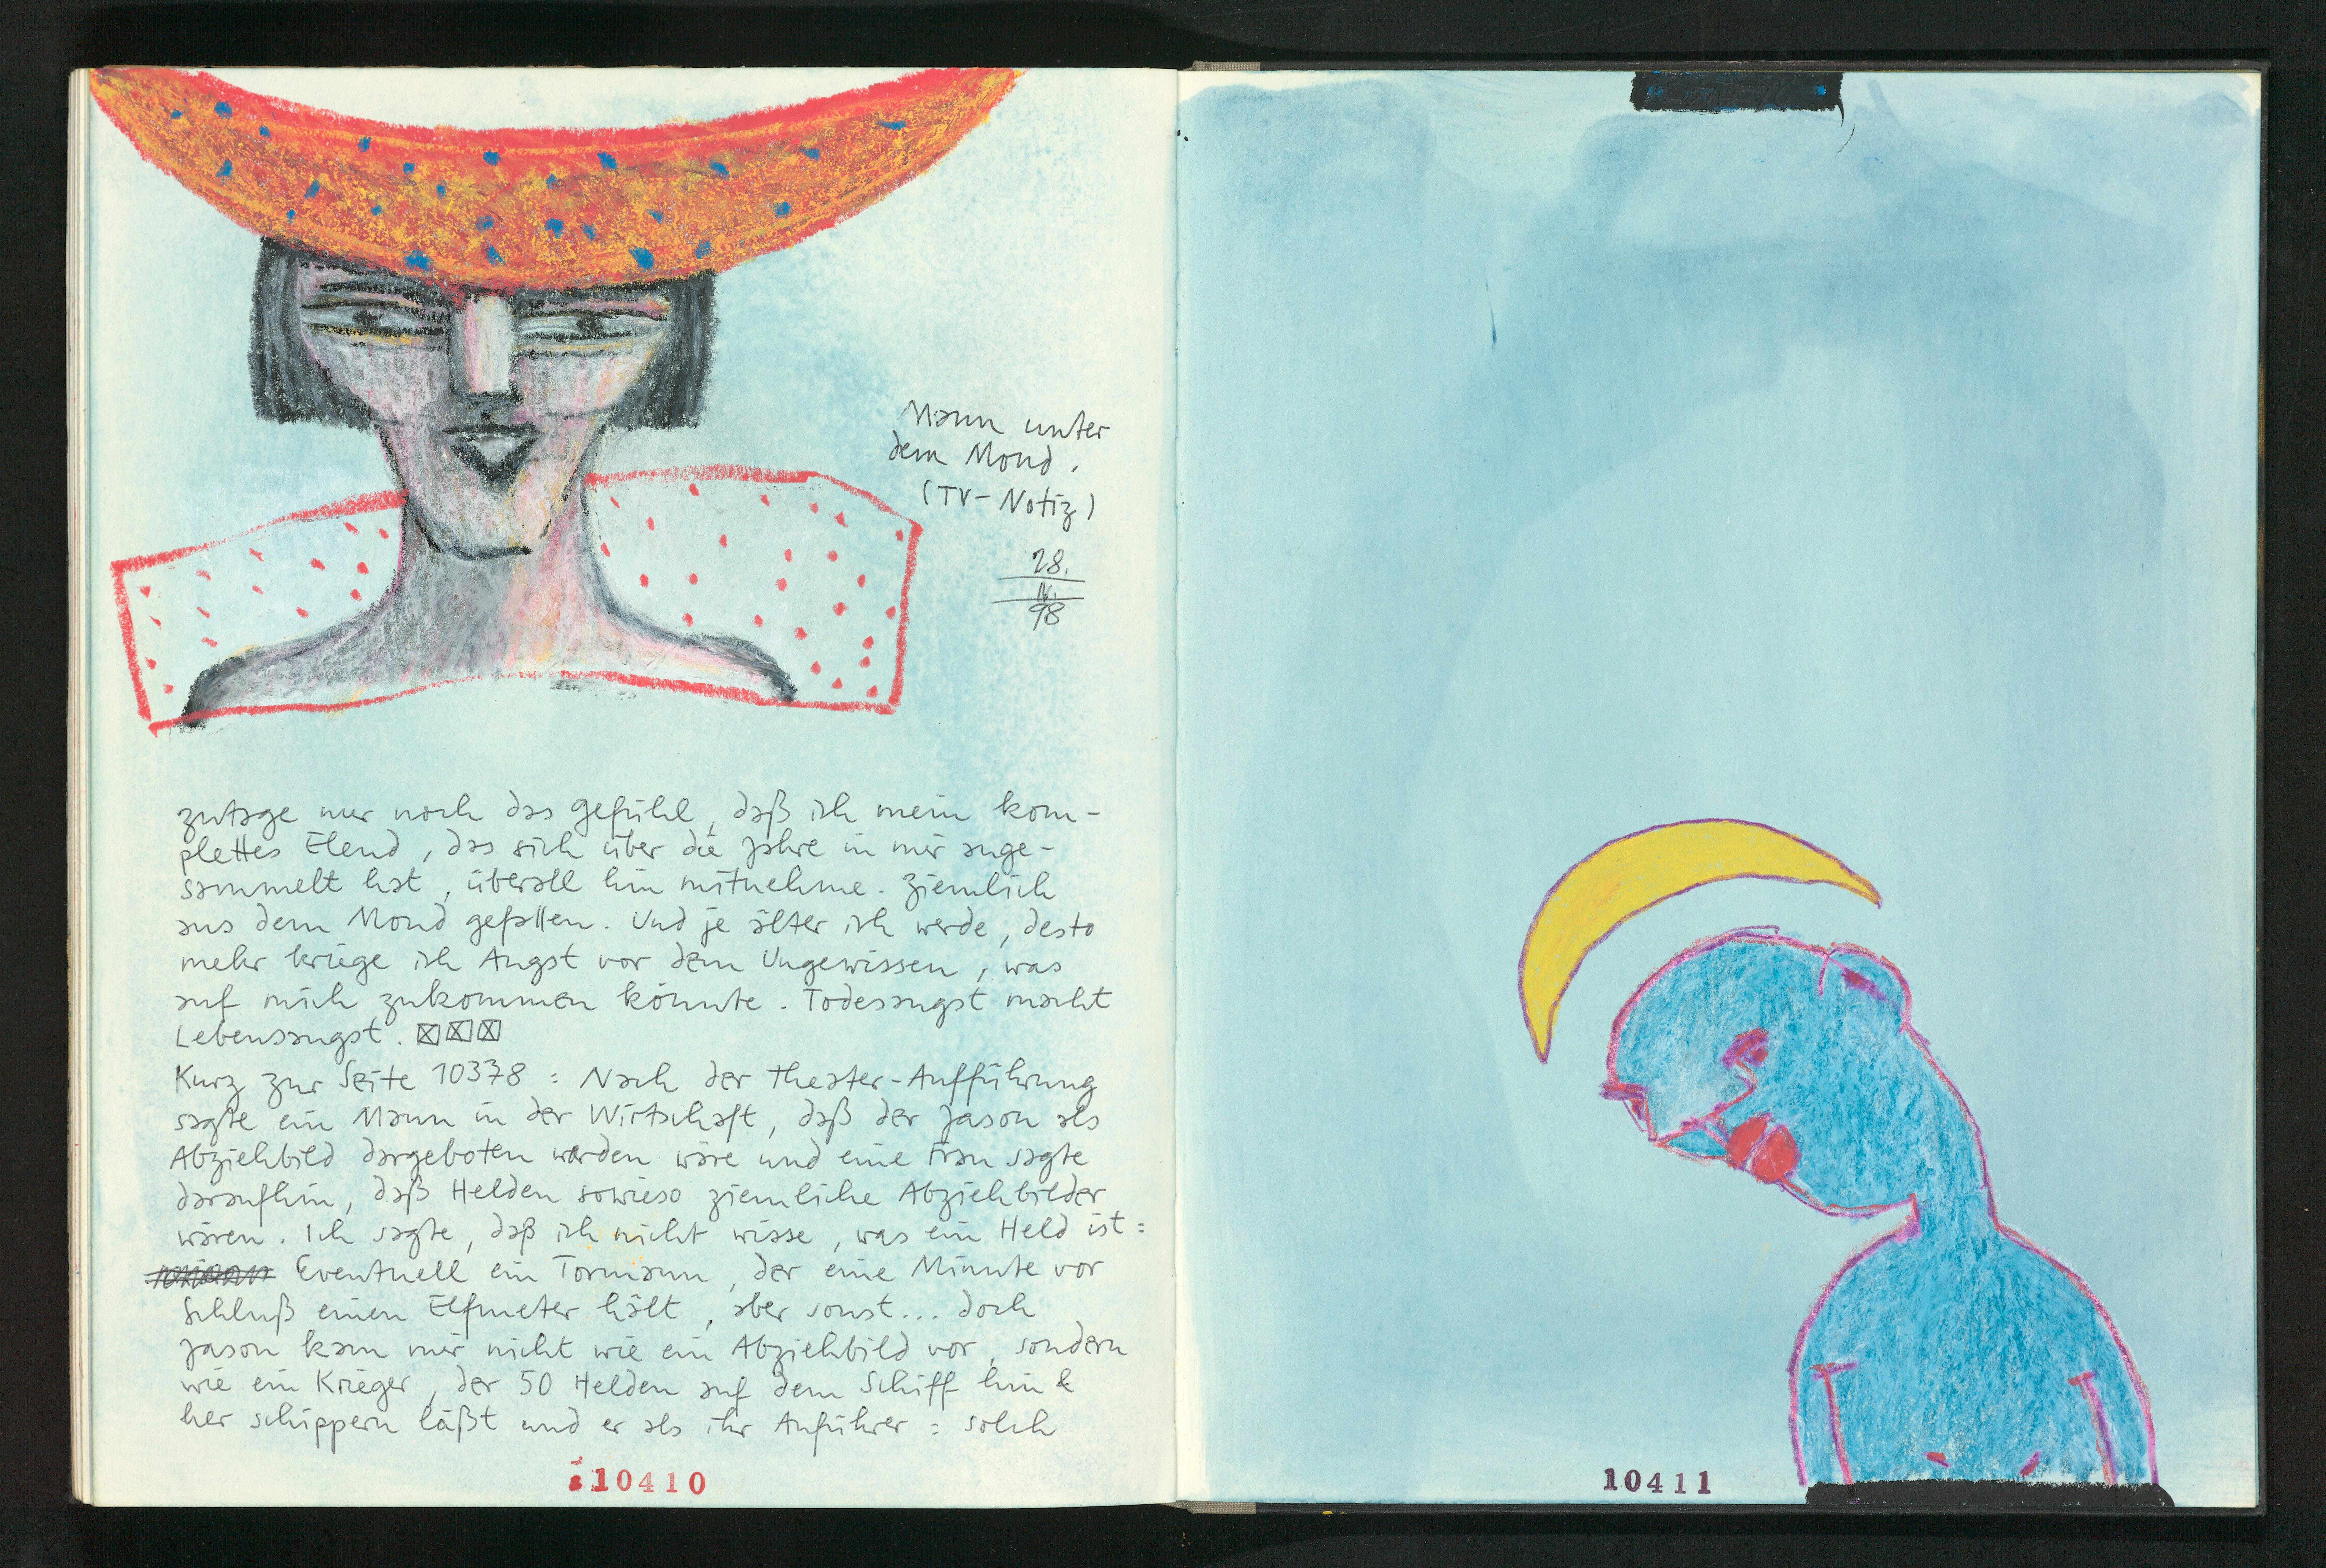 Mann unter
dem Mond.
(TV-Notiz)
28.
IV.
98
zutage nur noch das Gefühl, daß ich mein kom-
plettes Elend, das sich über die Jahre in mir ange-
sammelt hat, überall hin mitnehme. Ziemlich
aus dem Mond gefallen. Und je älter ich werde, desto
mehr kriege ich Angst vor dem Ungewissen, was
auf mich zukommen könnte. Todesangst macht
Lebensangst.
Kurz zur Seite 10378: Nach der Theater-Aufführung
sagte ein Mann in der Wirtschaft, daß der Jason als
Abziehbild dargeboten worden wäre und eine Frau sagte
daraufhin, daß Helden sowieso ziemliche Abziehbilder
wären. Ich sagte, daß ich nicht wisse, was ein Held ist:
Eventuell ein Tormann, der eine Minute vor
Schluß einen Elfmeter hält, aber sonst... doch
Jason kam mir nicht wie ein Abziehbild vor, sondern
wie ein Krieger, der 50 Helden auf dem Schiff hin &
her schippern läßt und er als ihr Anführer: solch
10410
10411